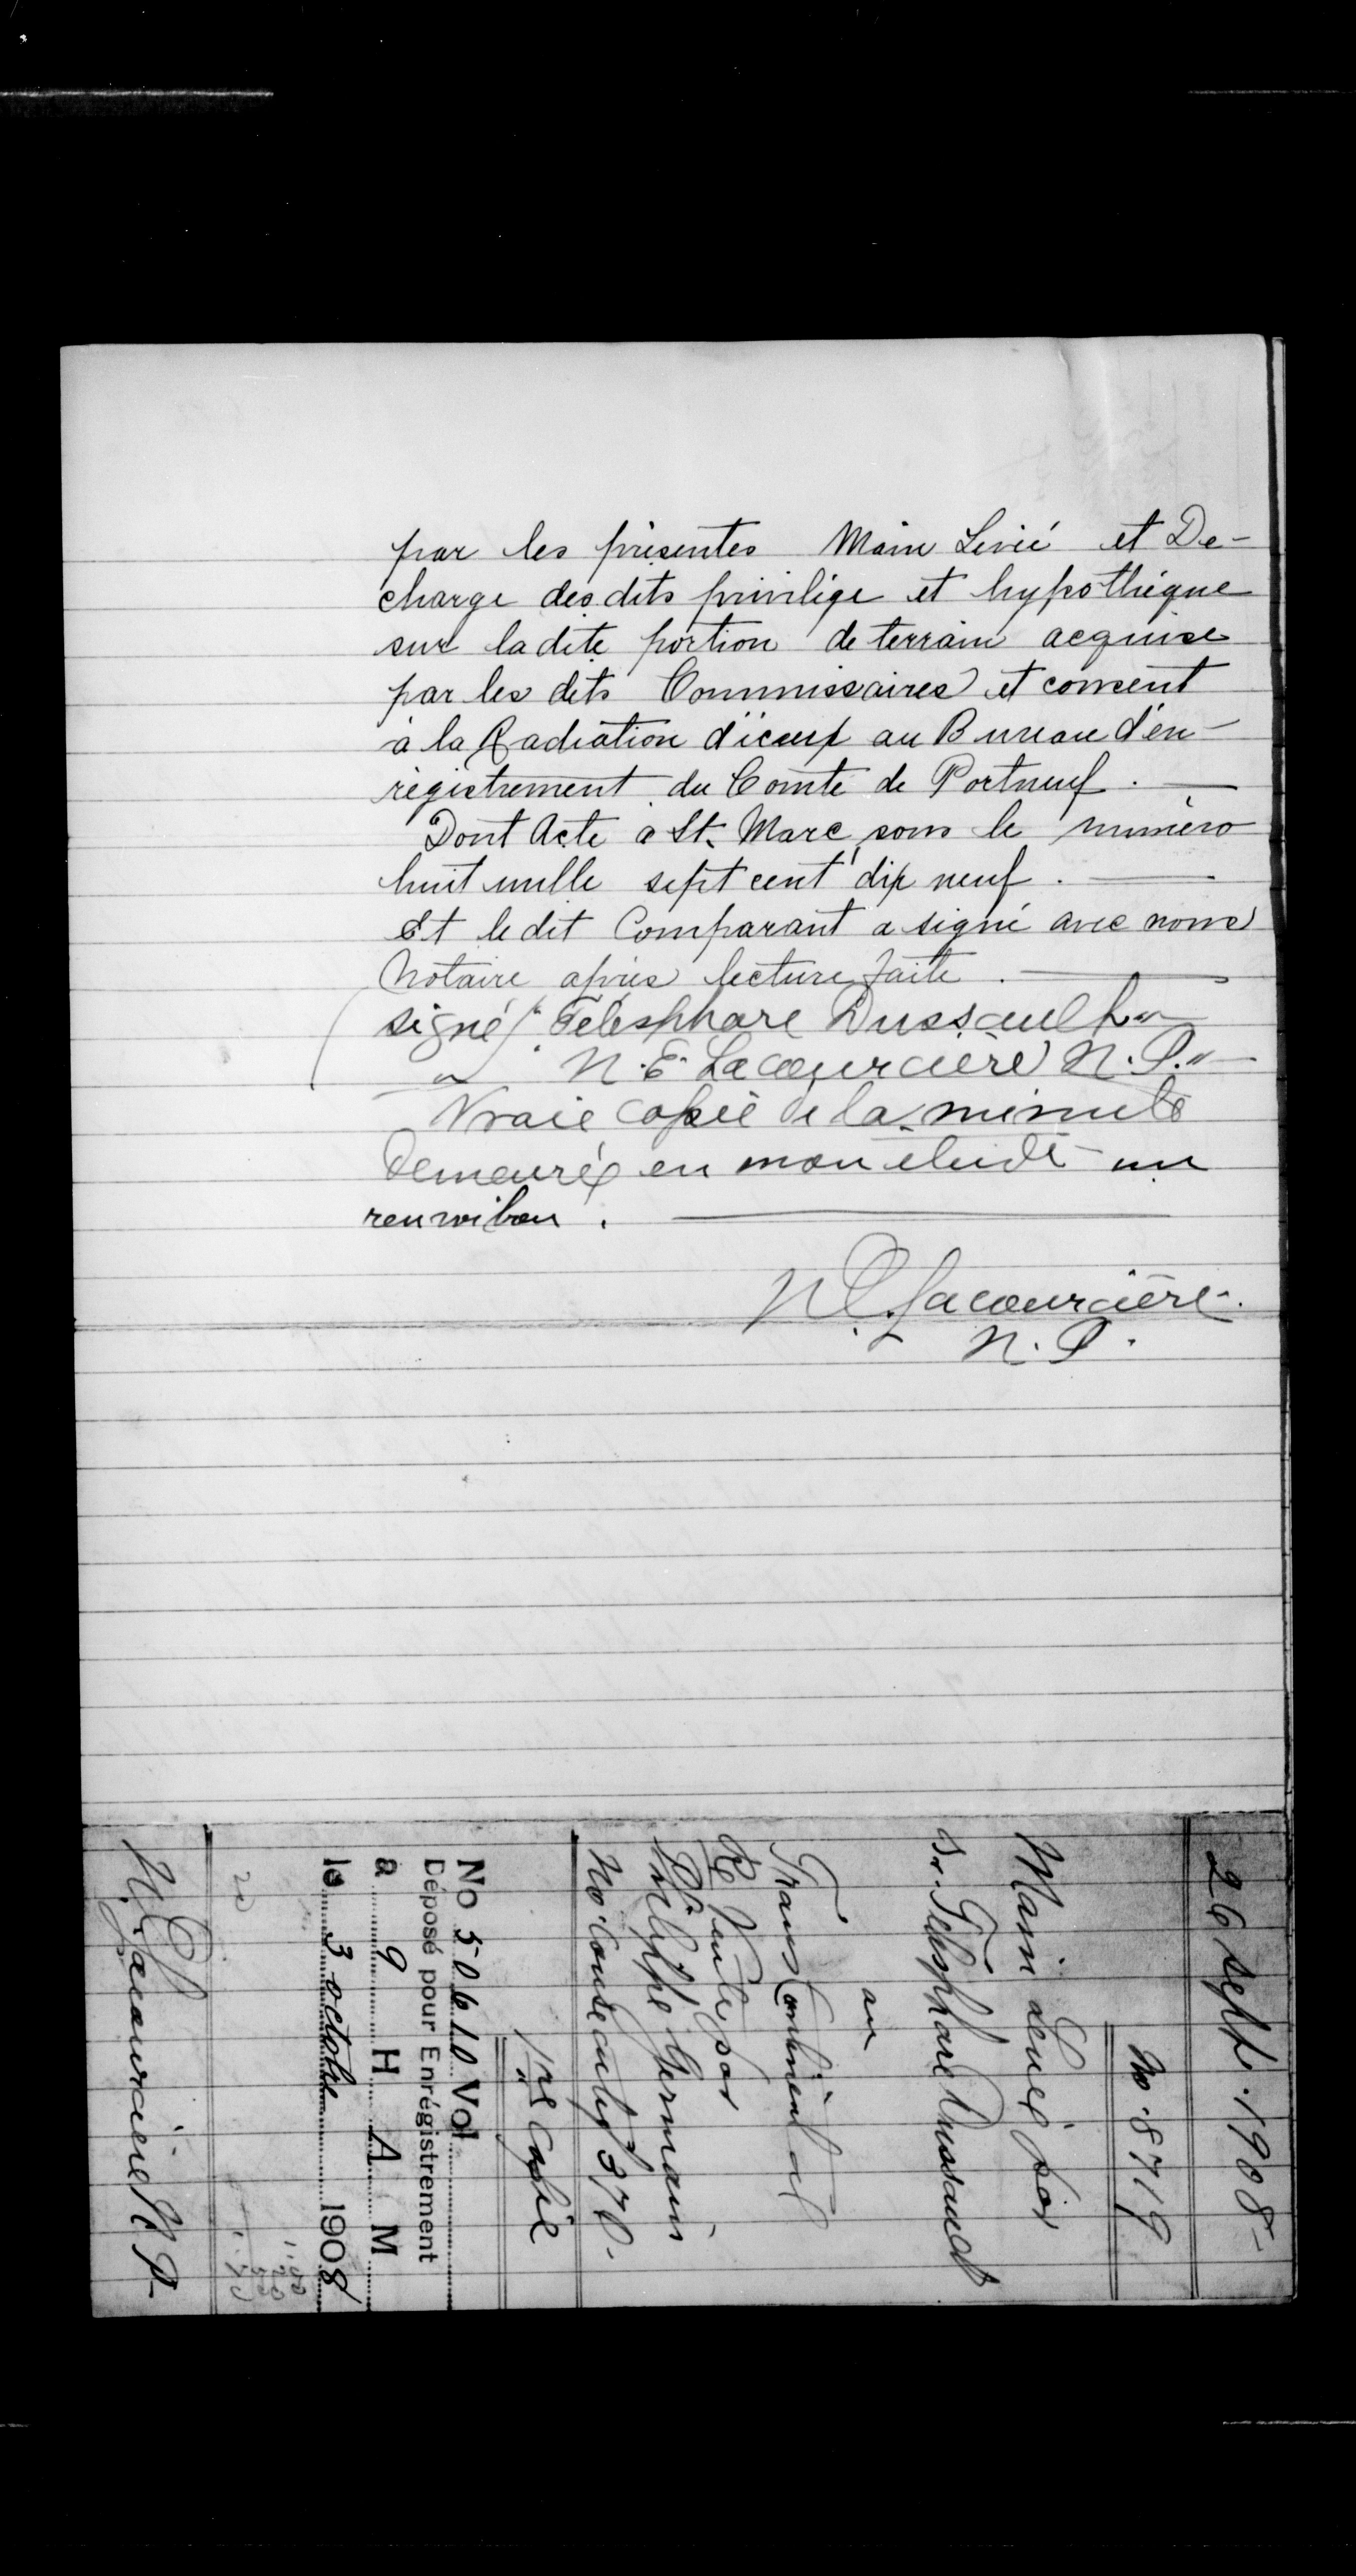 par les présentes Main Levée et De-
charge des dits privilège et hypothèque
sur la dite portion de terrain acquise
par les dits Commissaires et consent
à la Radiation d'iceux au Bureau d'en-
régistrement du Comté de Portneuf.
Dont Acte à St. Marc, sous le numéro
huit mille sept cent dix neuf.
Et le dit Comparant a signé avec nous
Notaire après lecture faite.
(signé) "Télesphore Dussault"
" N. E. Lacourcière N.P."
Vraie copie de la minute
demeurée en mon étude un
renvoi bon.
N E Lacourcière
N.P.
26 Sept. 1908
No. 8719
Main Levée par
Sr. Télesphore Dussault
au
Trans Continental
Re Vente par
Philippe Germain
No. Consecutif 370.
1re Copie
No 50610 Vol
Déposé pour Enrégistrement
a 9 H A M
le 3 octobre 1908
N. E. Lacourcière N.P.